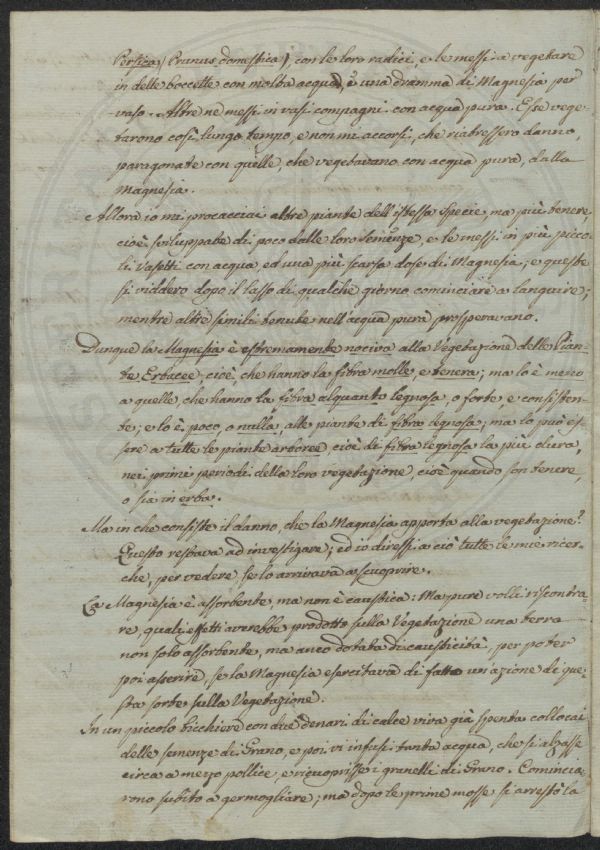 Persica (Prunus domestica), con le loro radici, e le messi a vegetare
in delle boccette con molta acqua, e una dramma di Magnesia per
vaso. Altre ne messi in vasi compagni con acqua pura. Esse vege-
tarono così lungo tempo, e non mi accorsi, che riabessero danno,
paragonate con quelle, che vegetavano con acqua pura, dalla
Magnesia.
Allora io mi procacciai altre piante dell'istessa specie, ma più tenere,
cioè sviluppate di poco dalle loro semenze, e le messi in più picco-
li Vasetti con acqua ed una più scarsa dose di Magnesia; e queste
si viddero dopo il lasso di qualche giorno cominciare a languire;
mentre altre simili tenute nell'acqua pura prosperavano.
Dunque la Magnesia è estremamente nociva alla Vegetazione delle Pian-
te Erbacee, cioè, che hanno la fibra molle, e tenera; ma lo è meno
a quelle che hanno la fibra alquanto legnosa, o forte, e consisten-
te; e lo è, poco, o nulla, alle piante di fibra legnosa; ma lo può es-
sere a tutte le piante arboree, cioè di fibra legnosa la più dura,
nei primi periodi della loro vegetazione, cioè quando son tenere,
o sia in erba.
Ma in che consiste il danno, che la Magnesia apporta alla vegetazione?
Questo restava ad investigare; ed io diressi a ciò tutte le mie ricer-
che, per vedere se lo arrivava a scuoprire.
La Magnesia è assorbente, ma non è caustica: Ma pure volli riscontra-
re, quali effetti averebbe prodotto sulla Vegetazione una terra
non solo assorbente, ma anco dotata di causticità, per poter
poi asserire, se la Magnesia esercitava di fatto un'azione di que-
sta sorte sulla Vegetazione.
In un piccolo bicchiere con due denari di calce viva già spenta collocai
delle semenze di Grano, e poi vi infusi tanta acqua, che si alzasse
circa a mezzo pollice, e ricuoprisse i granelli di Grano. Comincia-
rono subito a germogliare; ma dopo le prime mosse si arrestò la